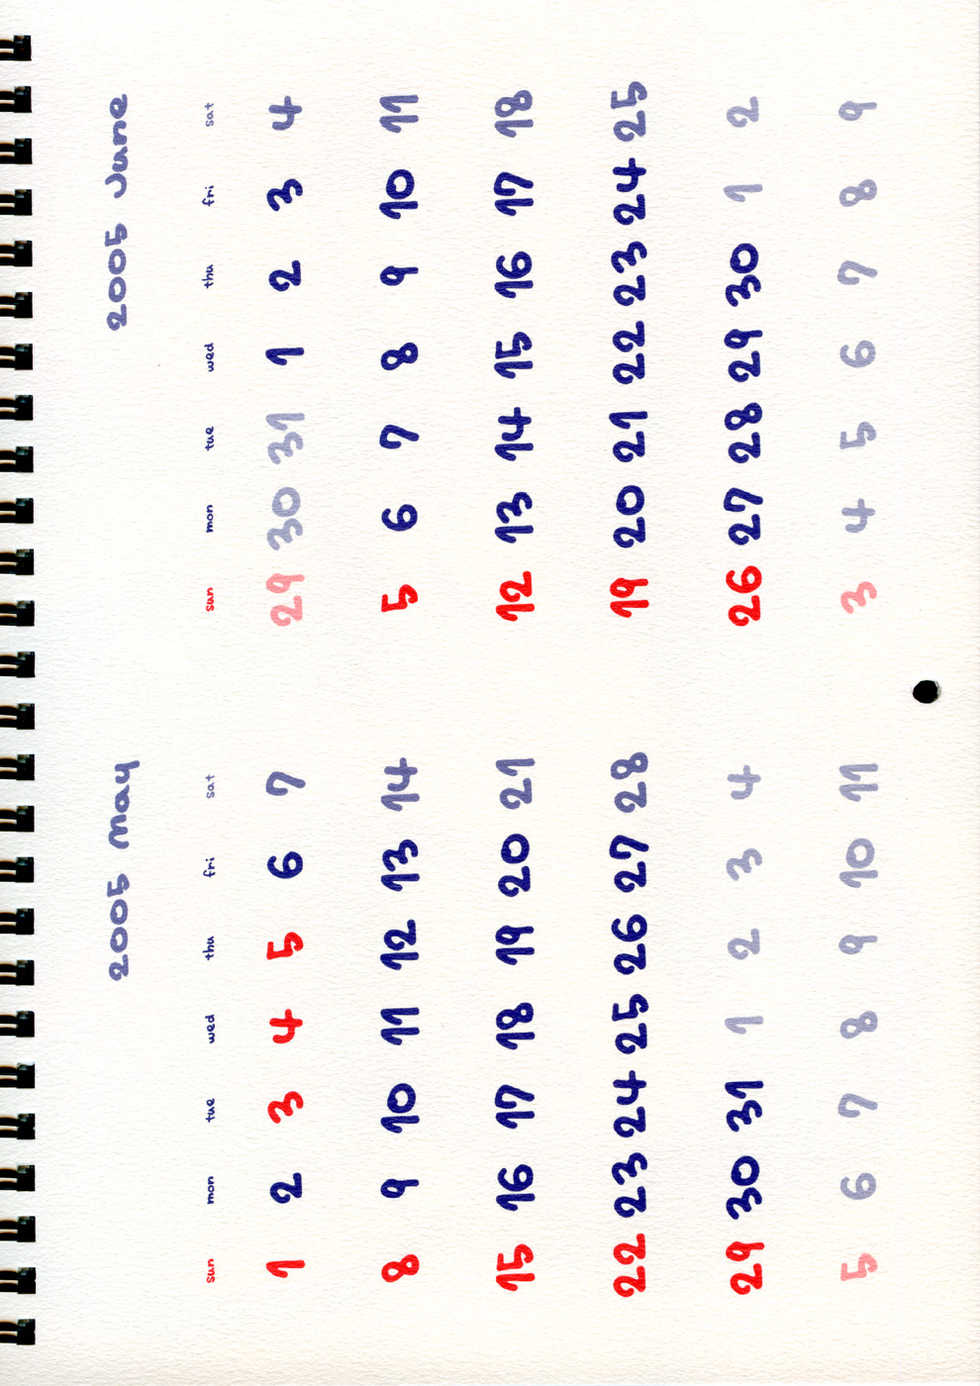 2005 May
sun mon tue wed thu fri sat
1 2 3 4 5 6 7
8 9 10 11 12 13 14
15 16 17 18 19 20 21
22 23 24 25 26 27 28
29 30 31 1 2 3 4
5 6 7 8 9 10 11
2005 June
sun mon tue wed thu fri sat
29 30 31 1 2 3 4
5 6 7 8 9 10 11
12 13 14 15 16 17 18
19 20 21 22 23 24 25
26 27 28 29 30 1 2
3 4 5 6 7 8 9